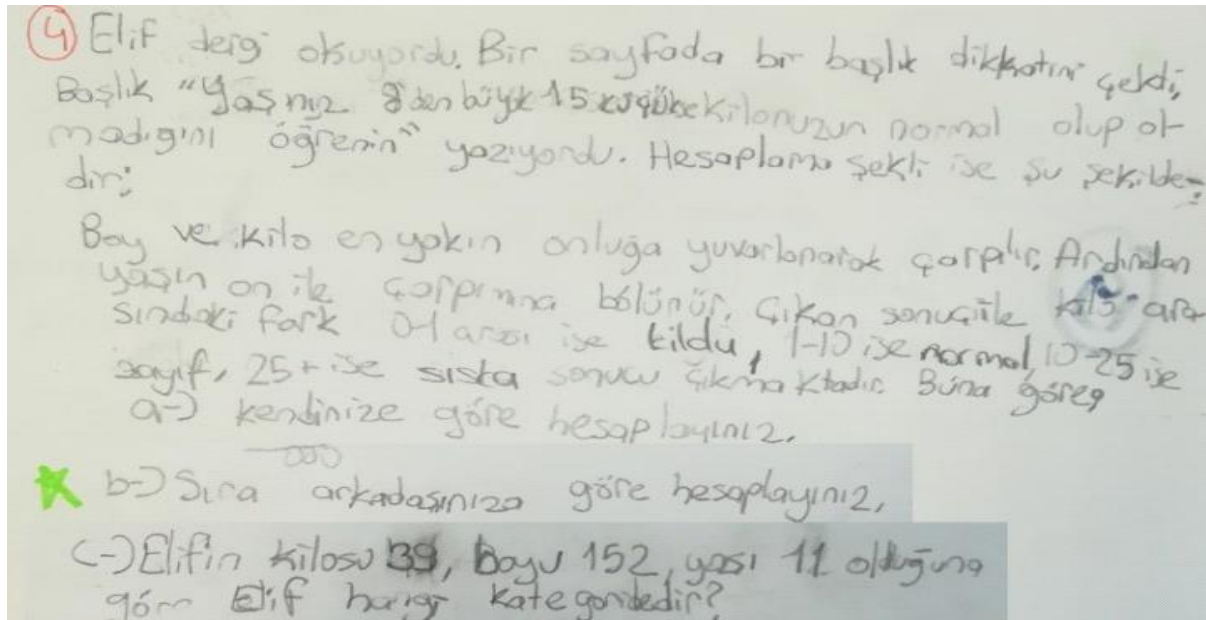 ④ Elif dergi okuyordu. Bir sayfada bir başlık dikkatini çekti;
Başlık "Yaşınız 8'den büyük 15 küçükse kilonuzun normal olup ol-
madığını öğrenin" yazıyordu. Hesaplama şekli ise şu şekilde-
dir;
Boy ve kilo en yakın onluğa yuvarlanarak çarpılır. Ardından
yaşın on ile çarpımına bölünür. Çıkan sonuç ile kilo ara-
sındaki fark 0-1 arası ise kildu, 1-10 ise normal, 10-25 ise
zayıf, 25+ ise sıska sonucu çıkmaktadır. Buna göre;
a-) kendinize göre hesaplayınız.
b-) Sıra arkadaşınıza göre hesaplayınız.
c-) Elifin kilosu 39, boyu 152, yaşı 11 olduğuna
göre Elif hangi kategoridedir?